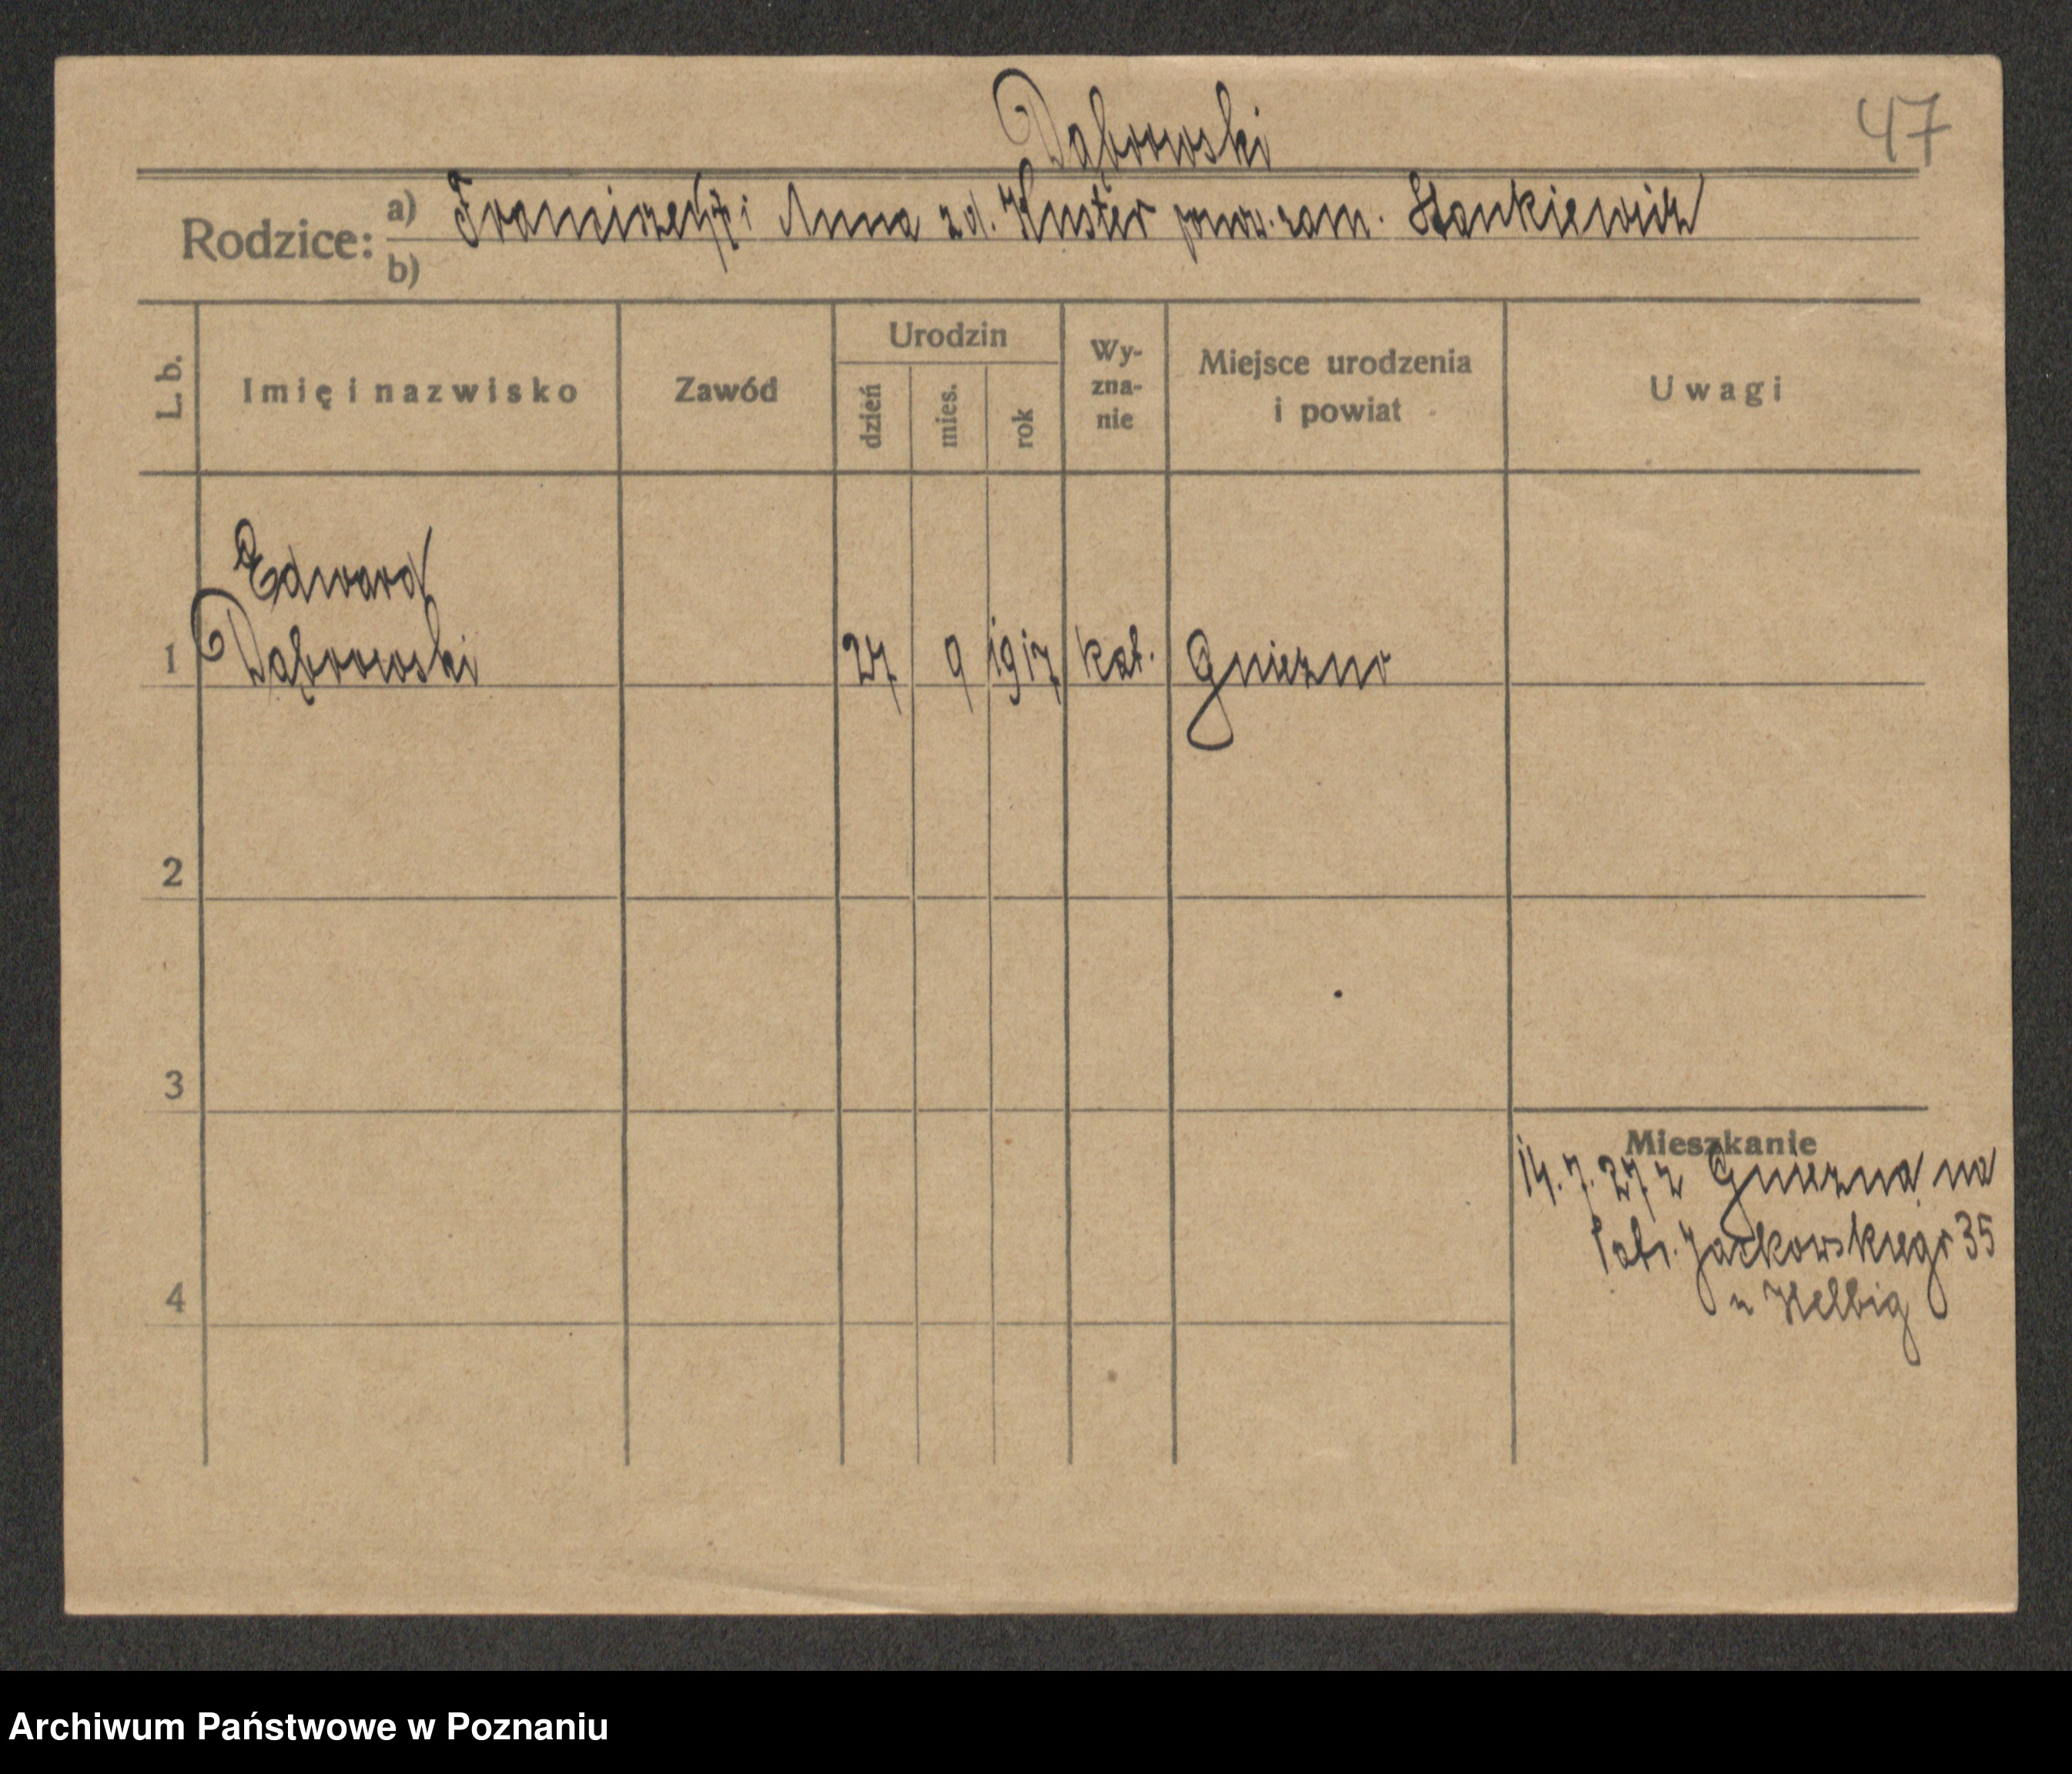 Dąbrowski
47
Rodzice:
a) Franciszek † i Anna zd. Kuster pow. zam. Stankiewicz
b)
L. b.
Imię i nazwisko
Zawód
Urodzin
dzień
mies.
rok
Wy-
zna-
nie
Miejsce urodzenia
i powiat
Uwagi
Edward
1 Dąbrowski 27 9 1917 kat. Gniezno
2
3
4
Mieszkanie
14.7.27 z Gniezna na
Jackowskiego 35
u Helbig
Archiwum Państwowe w Poznaniu